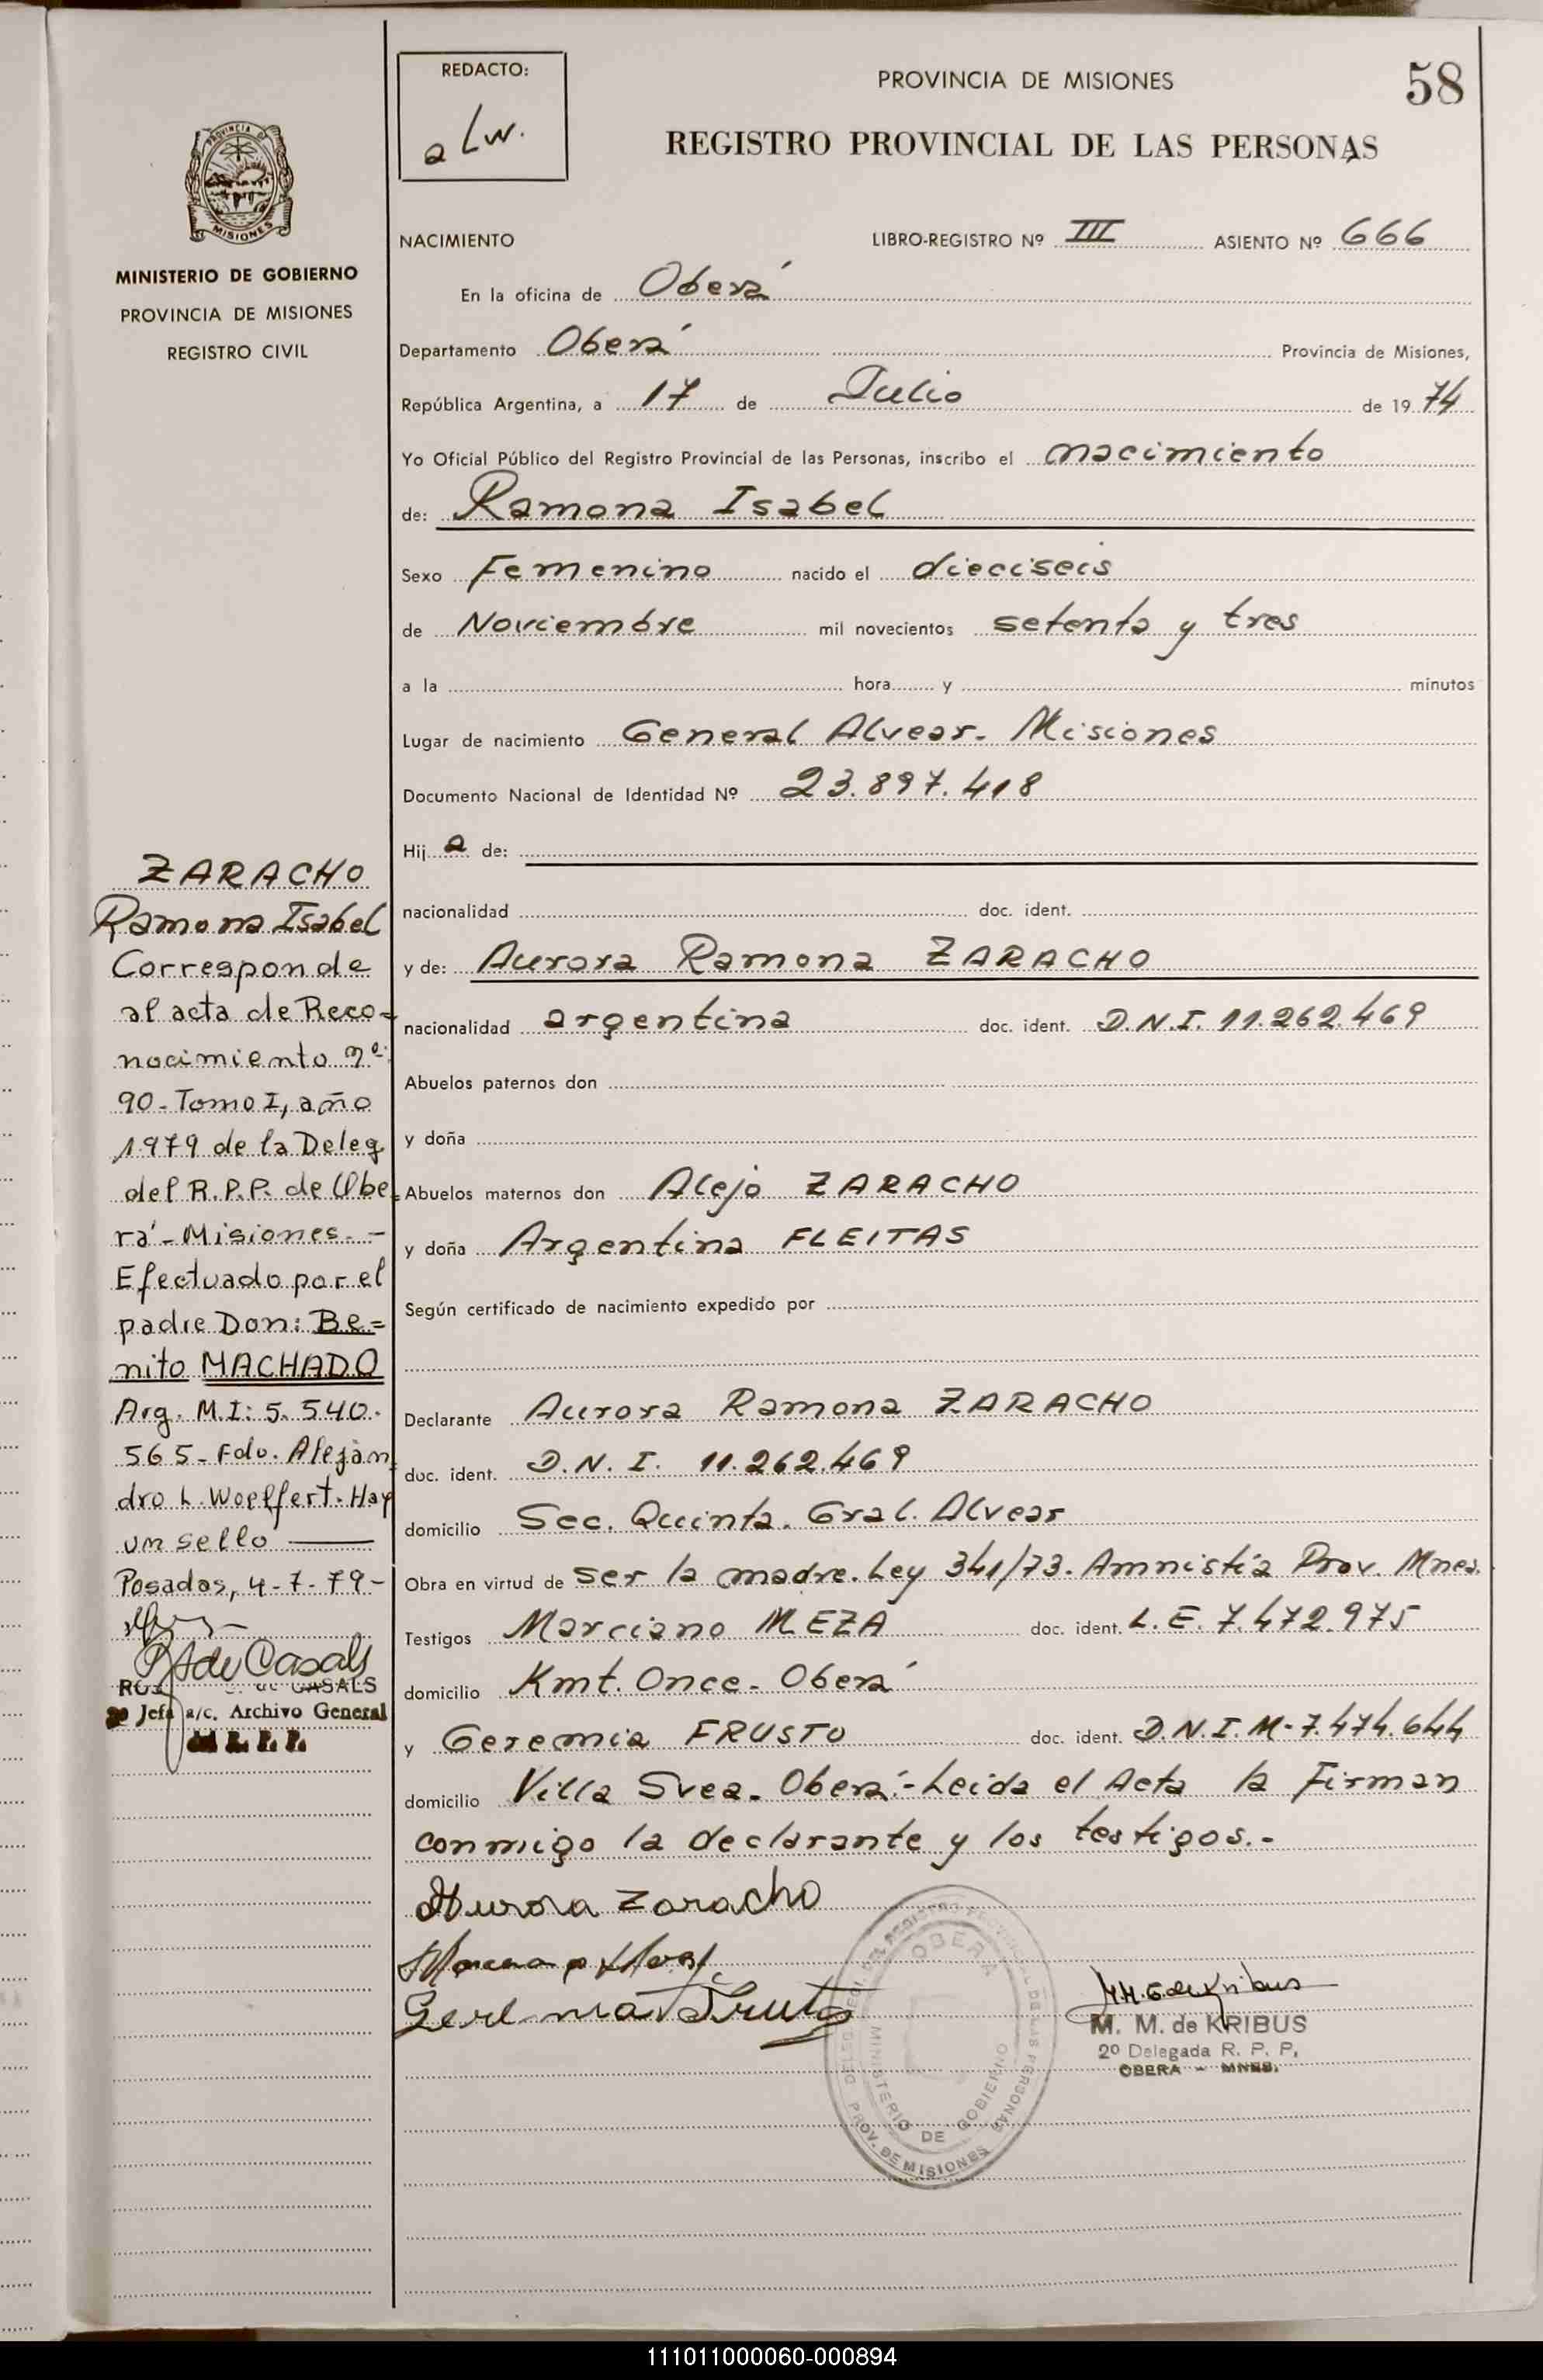 PROVINCIA DE MISIONES
MINISTERIO DE GOBIERNO
PROVINCIA DE MISIONES
REGISTRO CIVIL
ZARACHO
Ramona Isabel
Corresponde
al acta de Reco=
nocimiento nº:
90 - Tomo I, año
1979 de la Deleg
del R.P.P. de Obe=
rá - Misiones. -
Efectuado por el
padre Don: Be=
nito MACHADO
Arg. M.I: 5.540.
565 - Fdo. Alejan
dro L. Woelffert. Hay
un sello
Posadas, 4-7-79-
de Casals
de CASALS
2º Jefa a/c. Archivo General
del R. P. P.
REDACTO:
a Lw.
PROVINCIA DE MISIONES
58
REGISTRO PROVINCIAL DE LAS PERSONAS
NACIMIENTO LIBRO-REGISTRO Nº III ASIENTO Nº 666
En la oficina de Oberá
Departamento Oberá Provincia de Misiones,
República Argentina, a 17 de Julio de 1974
Yo Oficial Público del Registro Provincial de las Personas, inscribo el nacimiento
de: Ramona Isabel
Sexo Femenino nacido el dieciseis
de Noviembre mil novecientos setenta y tres
a la hora y minutos
Lugar de nacimiento General Alvear. Misiones
Documento Nacional de Identidad Nº 23.897.418
Hij a de:
nacionalidad doc. ident.
y de: Aurora Ramona ZARACHO
nacionalidad argentina doc. ident. D.N.I. 11.262.469
Abuelos paternos don
y doña
Abuelos maternos don Alejo ZARACHO
y doña Argentina FLEITAS
Según certificado de nacimiento expedido por
Declarante Aurora Ramona ZARACHO
doc. ident. D.N.I. 11.262.469
domicilio Sec. Quinta. Gral. Alvear
Obra en virtud de ser la madre. Ley 341/73. Amnistía Prov. Mnes.
Testigos Marciano MEZA doc. ident. L.E. 7.472.975
domicilio Kmt. Once - Oberá
y Geremia FRUSTO doc. ident. D.N.I.M-7.474.644
domicilio Villa Svea. Oberá.- Leída el Acta la Firman
conmigo la declarante y los testigos.-
Aurora Zaracho
M. M. de KRIBUS
2º Delegada R. P. P.
OBERA - MNES.
OBERA
MINISTERIO DE GOBIERNO
PROV. DE MISIONES
111011000060-000894